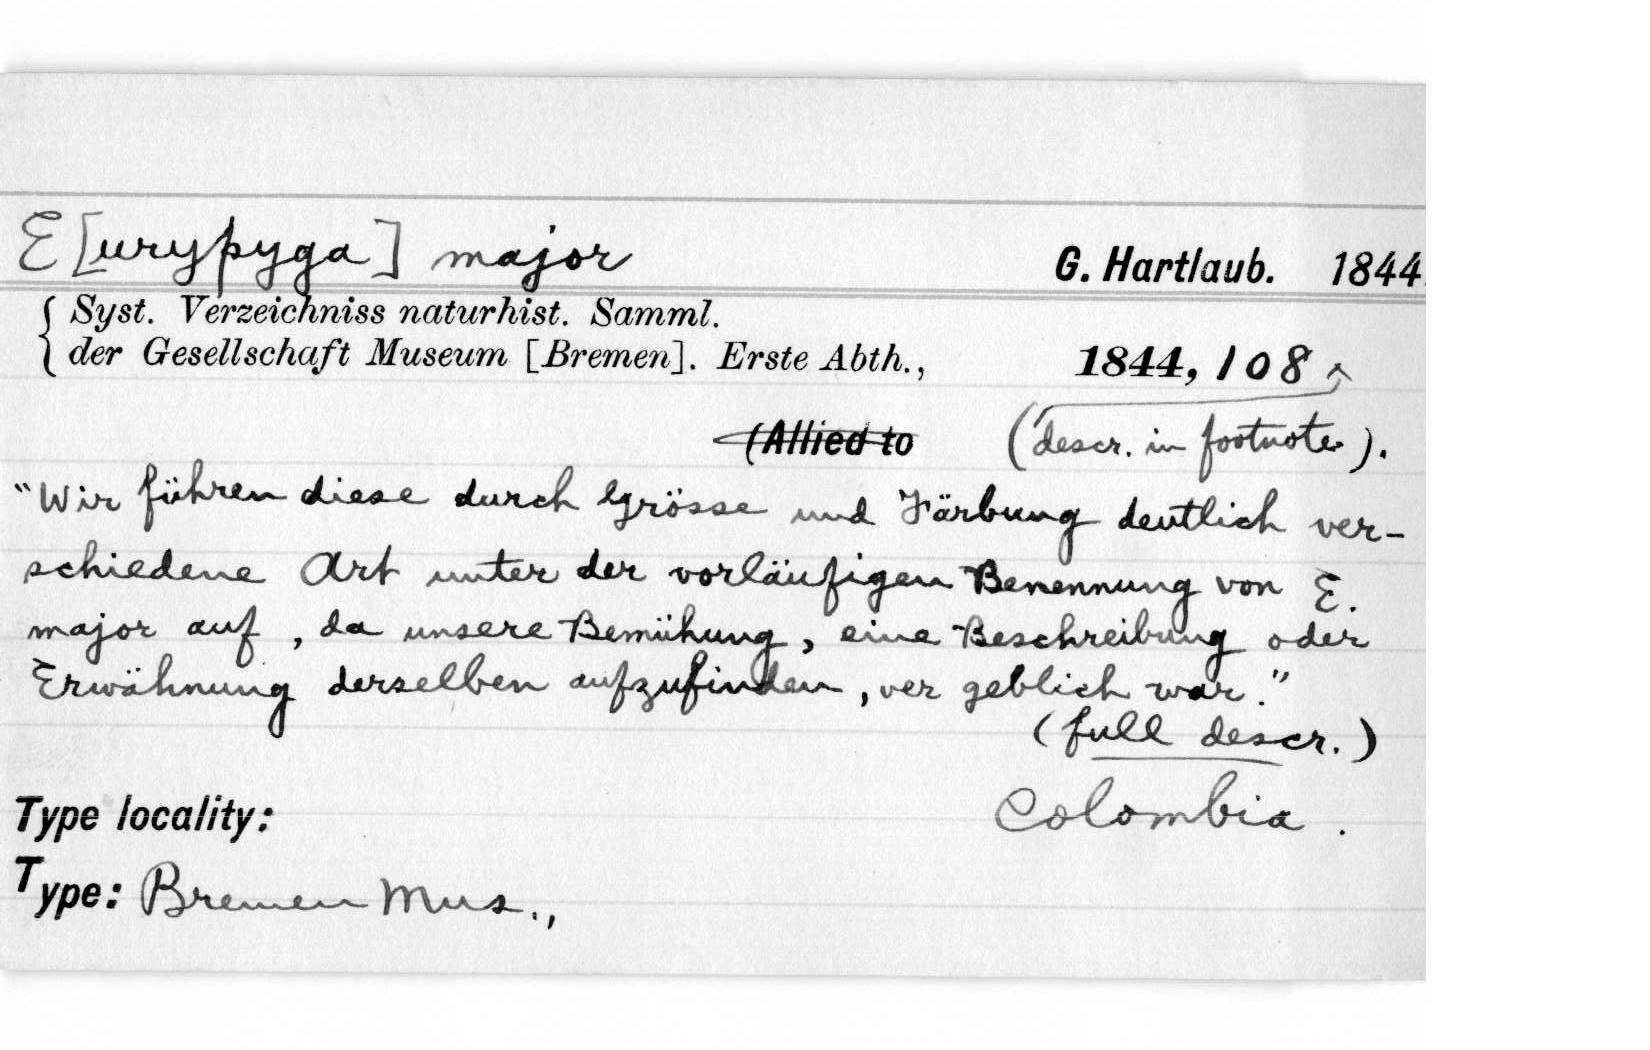 E[urypyga] major G. Hartlaub. 1844.
Syst. Verzeichniss naturhist. Samml.
der Gesellschaft Museum [Bremen]. Erste Abth., 1844, 108
(Allied to (descr. in footnote).
"Wir führen diese durch Grösse und Färbung deutlich ver-
schiedene Art unter der vorläufigen Benennung von E.
major auf, da unsere Bemühung, eine Beschreibung oder
Erwähnung derselben aufzufinden, ver geblich war."
(full descr.)
Type locality: Colombia.
Type: Bremen Mus.,